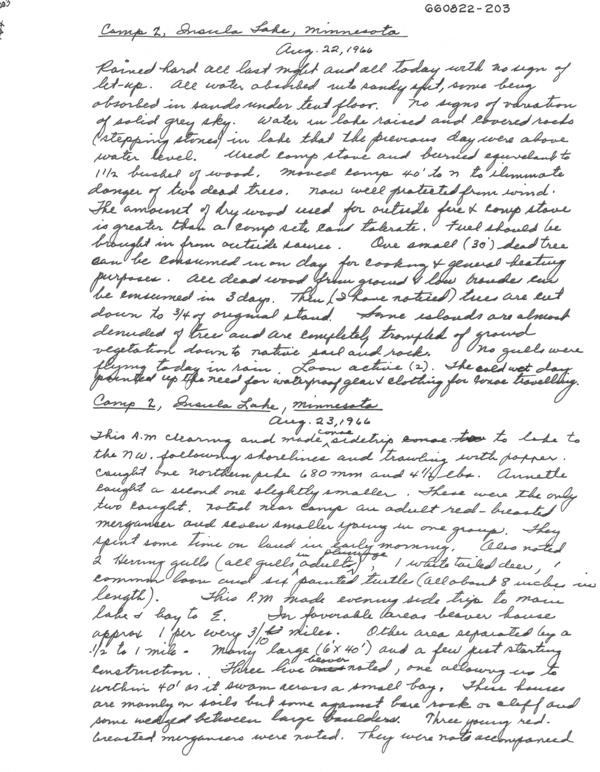 660822-203
Camp 2, Insula Lake, Minnesota
Aug. 22, 1966
Rained hard all last night and all today with no sign of
let-up. All water absorbed into sandy spit, some being
absorbed in sands under tent floor. No signs of variation
of solid grey sky. Water in lake raised and covered rocks
(stepping stones) in lake that the previous day were above
water level. Used camp stove and burned equivalent to
1 1/2 bushel of wood. Moved camp 40' to N to eliminate
danger of two dead trees. Now well protected from wind.
The amount of dry wood used for outside fire & camp stove
is greater than a camp site can tolerate. Fuel should be
brought in from outside source. One small (30') dead tree
can be consumed in on day for cooking & general heating
purposes. All dead wood from ground & low branches can
be consumed in 3 days. Then (I have noticed) trees are cut
down to 3/4 of original stand. Some islands are almost
denuded of tree and are completely trampled of ground
vegetation down to native soil and rock. No gulls were
flying today in rain. Loon active (2). The cold wet day
pointed up the need for waterproof gear & clothing for canoe travelling.
Camp 2, Insula Lake, Minnesota
Aug. 23, 1966
This A.M clearing and made canoe sidetrip to lake to
the NW. following shorelines and trawling with popper.
Caught one northern pike 680 mm and 4 1/2 lbs. Annette
caught a second one slightly smaller. These were the only
two caught. Noted near camp an adult red-breasted
merganser and seven smaller young in one group. They
spent some time on land in early morning. Also noted
2 Herring gulls (all gulls in adult plumage), 1 white tailed deer, 1
common loon and six painted turtles (all about 8 inches in
length). This P.M made evening side trip to main
lake & bay to E. In favorable areas beaver house
approx 1 per every 3/10 miles. Other area separated by a
1/2 to 1 mile. Many large (6'x40') and a few just starting
construction. Three live beaver noted, one allowing us to
within 40' as it swam across a small bay. These houses
are mainly on soils but some against bare rock or cliff and
some wedged between large boulders. Three young red-
breasted mergansers were noted. They were not accompanied